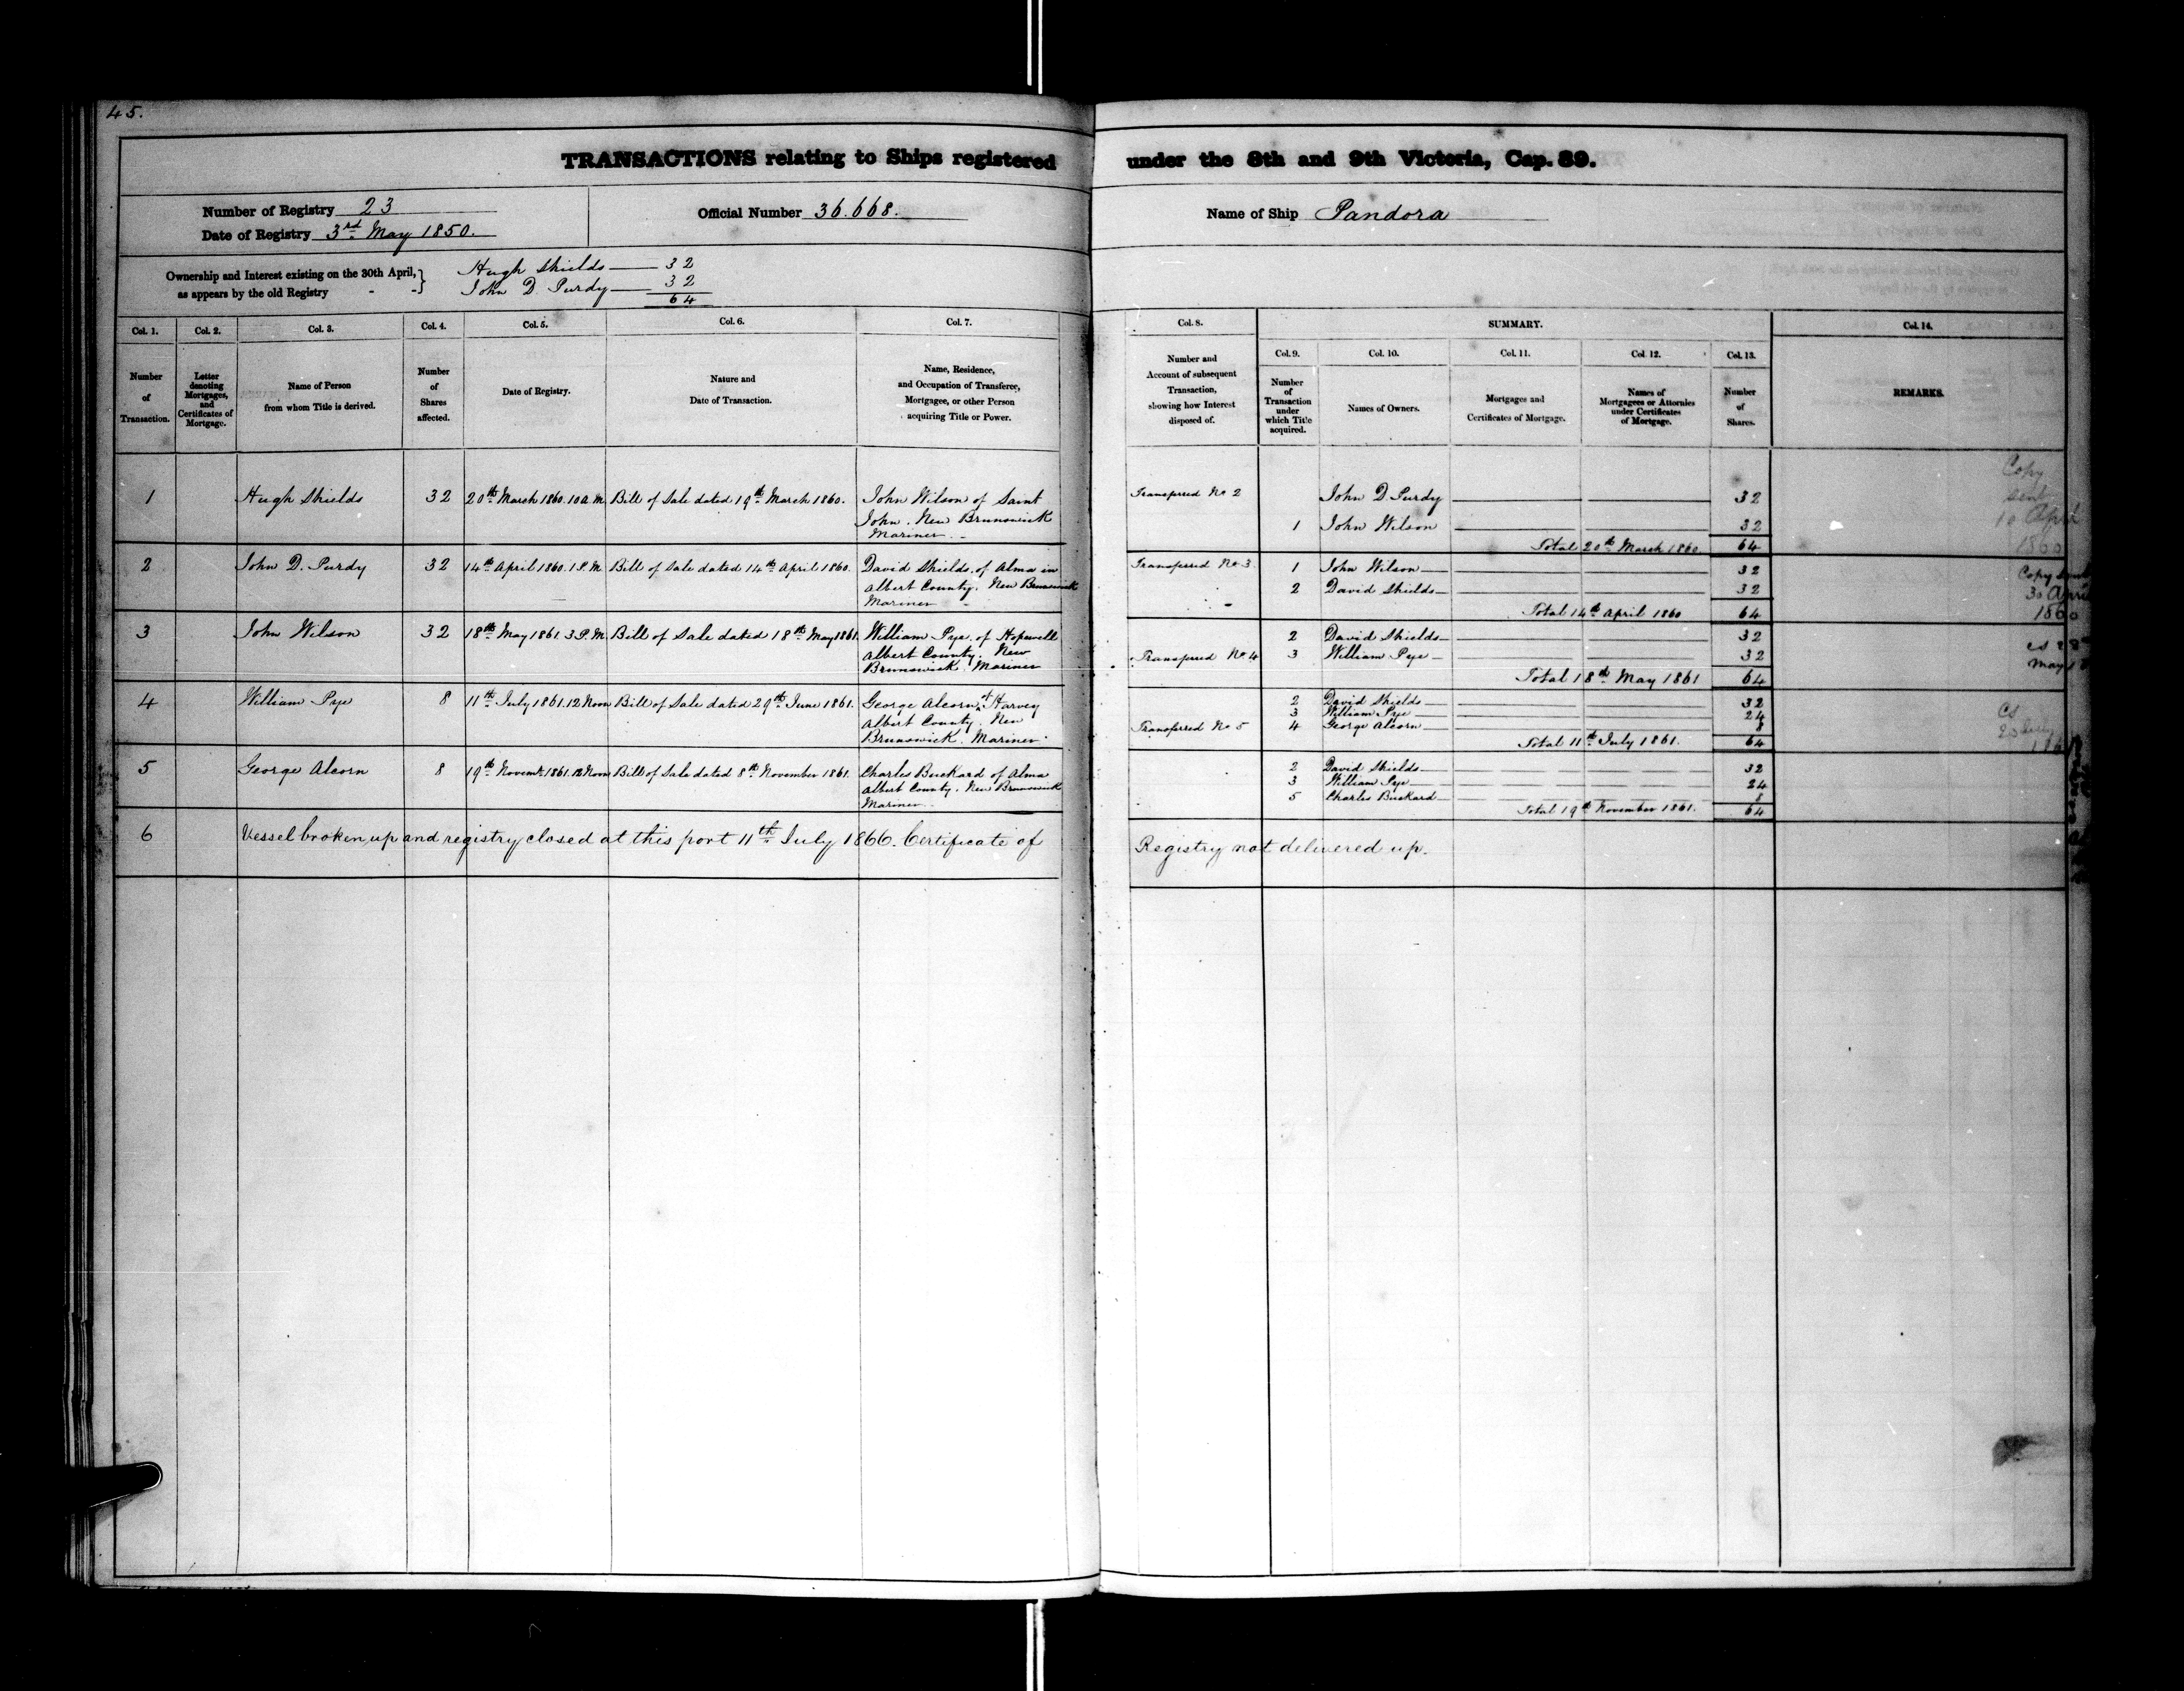 45.
TRANSACTIONS relating to Ships registered under the 8th and 9th Victoria, Cap. 89.
Number of Registry 23
Date of Registry 3rd May 1850.
Official Number 36.668.
Name of Ship Pandora
Ownership and Interest existing on the 30th April,}
as appears by the old Registry - -
Hugh Shields 32
John D. Purdy 32
64
Col. 1.
Number
of
Transaction.
Col. 2.
Letter
denoting
Mortgages,
and
Certificates of
Mortgage.
Col. 3.
Name of Person
from whom Title is derived.
Col. 4.
Number
of
Shares
affected.
Col. 5.
Date of Registry.
Col. 6.
Nature and
Date of Transaction.
Col. 7.
Name, Residence,
and Occupation of Transferee,
Mortgagee, or other Person
acquiring Title or Power.
Col. 8.
Number and
Account of subsequent
Transaction,
showing how Interest
disposed of.
SUMMARY.
Col. 9.
Number
of
Transaction
under
which Title
acquired.
Col. 10.
Names of Owners.
Col. 11.
Mortgages and
Certificates of Mortgage.
Col. 12.
Names of
Mortgagees or Attornies
under Certificates
of Mortgage.
Col. 13.
Number
of
Shares.
Col. 14.
REMARKS.
1 Hugh Shields 32 20th March 1860. 10 A.M. Bill of Sale dated 19th March 1860. John Wilson of Saint
John. New Brunswick
Mariner.
Transferred No 2 John D Purdy 32
1 John Wilson 32
Total 20th March 1860 64
Copy
sent
10 April
1860
2 John D. Purdy 32 14th April 1860. 1 P.M. Bill of Sale dated 14th April 1860. David Shields. of Alma in
Albert County. New Brunswick
Mariner
Transferred No 3 1 John Wilson 32
2 David Shields 32
Total 14th April 1860 64
Copy sent
30 April
1860
3 John Wilson 32 18th May 1861. 3 P.M. Bill of Sale dated 18th May 1861. William Pye. of Hopewell
Albert County. New
Brunswick. Mariner
2 David Shields 32
Transferred No 4 3 William Pye 32
Total 18th May 1861 64
cs 28
May
4 William Pye 8 11th July 1861. 12 Noon Bill of Sale dated 29th June 1861. George Alcorn of Harvey
Albert County. New
Brunswick. Mariner.
2 David Shields 32
3 William Pye 24
Transferred No 5 4 George Alcorn 8
Total 11th July 1861. 64
cs
23 July
5 George Alcorn 8 19th Novemr. 1861. 12 Noon Bill of Sale dated 8th November 1861. Charles Buckard of Alma
Albert County. New Brunswick
Mariner.
2 David Shields 32
3 William Pye 24
5 Charles Buckard 8
Total 19th November 1861. 64
6 Vessel broken up and registry closed at this port 11th July 1866. Certificate of Registry not delivered up.